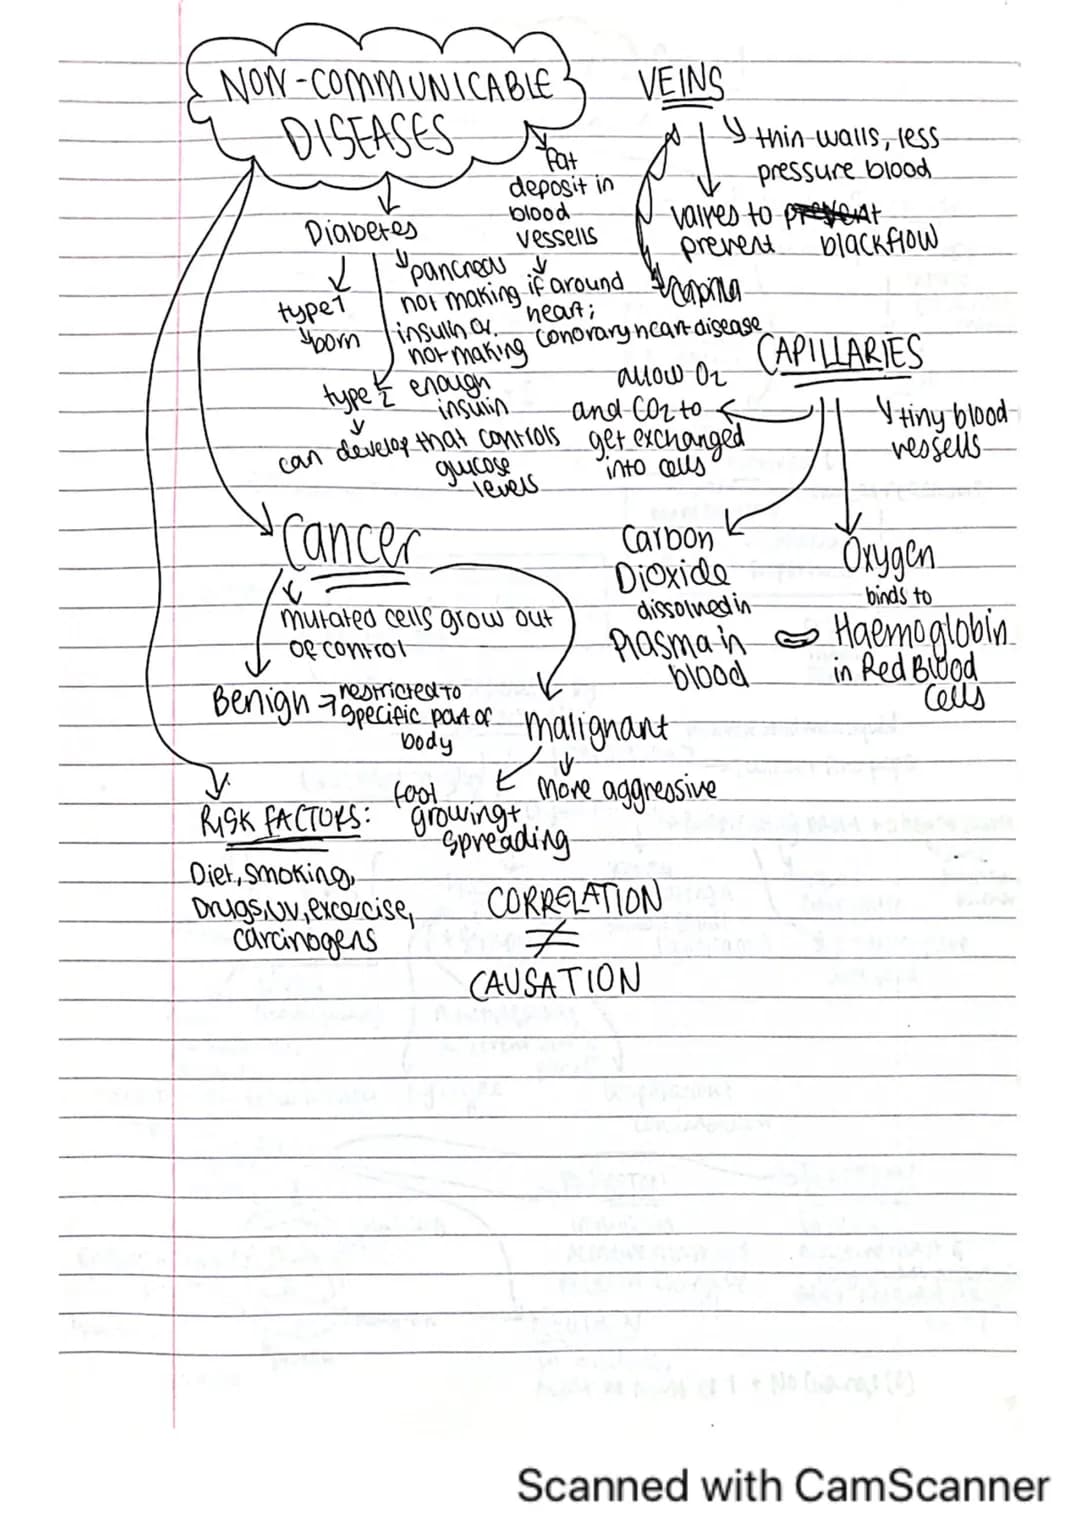 NON-COMMUNICABLE
DISEASES
fat
deposit in
blood
vessells
if around
heart;
conorary heart disease
Diabetes
type 1
born
pancreas
not making
insulin or
not making
enough
insulin
that controls
glucose
levels
type 2
can develop
Cancer
mutated cells grow out
of control
Benign → restricted to
specific part of
body
malignant
more aggressive
fast
growing +
spreading
RISK FACTORS:
Diet, smoking,
Drugs, UV, excercise,
carcinogens
CORRELATION
≠
CAUSATION
VEINS
thin walls, less
pressure blood
valves to
prevent blackflow
capilla
CAPILLARIES
tiny blood
vessells
allow O2
and CO2 to
get exchanged
into cells
Carbon
Dioxide
dissolned in
Plasma in
blood
Oxygen
binds to
Haemoglobin
in Red Blood
Cells
Scanned with CamScanner